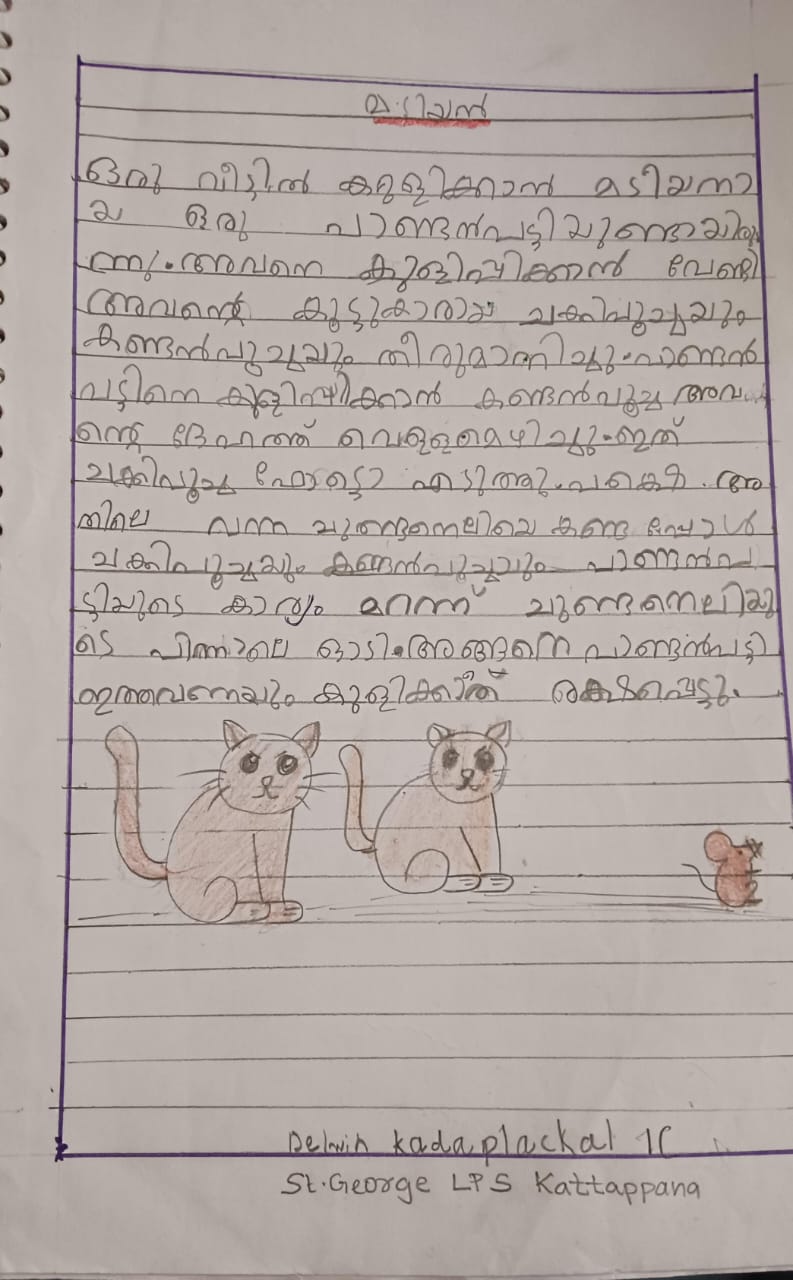 മടിയൻ
ഒരു വീട്ടിൽ കുളിക്കാൻ മടിയനാ
യ ഒരു പാണ്ടൻപട്ടിയുണ്ടായിരു
ന്നു. അവനെ കുളിപ്പിക്കാൻ വേണ്ടി
അവന്റെ കൂട്ടുകാരായ ചക്കിപൂച്ചയും
കണ്ടൻപൂച്ചയും തീരുമാനിച്ചു. പാണ്ടൻ
പട്ടിനെ കുളിപ്പിക്കാൻ കണ്ടൻപൂച്ച അവ
ന്റെ ദേഹത്ത് വെള്ളമൊഴിച്ചു. ഇത്
ചക്കിപൂച്ച ഫോട്ടൊ എടുത്തു. പക്ഷെ. അ
തിലെ വന്ന ചുണ്ടനെലിയെ കണ്ടപ്പോൾ
ചക്കിപൂച്ചയും കണ്ടൻപൂച്ചയും പാണ്ടൻപ
ട്ടിയുടെ കാര്യം മറന്ന് ചുണ്ടനെലിയു
ടെ പിന്നാലെ ഓടി. അങ്ങനെ പാണ്ടൻപട്ടി
ഇത്തവണയും കുളിക്കാതെ രക്ഷപ്പെട്ടു.
Delwin Kadaplackal 1C
St. George LPS Kattappana